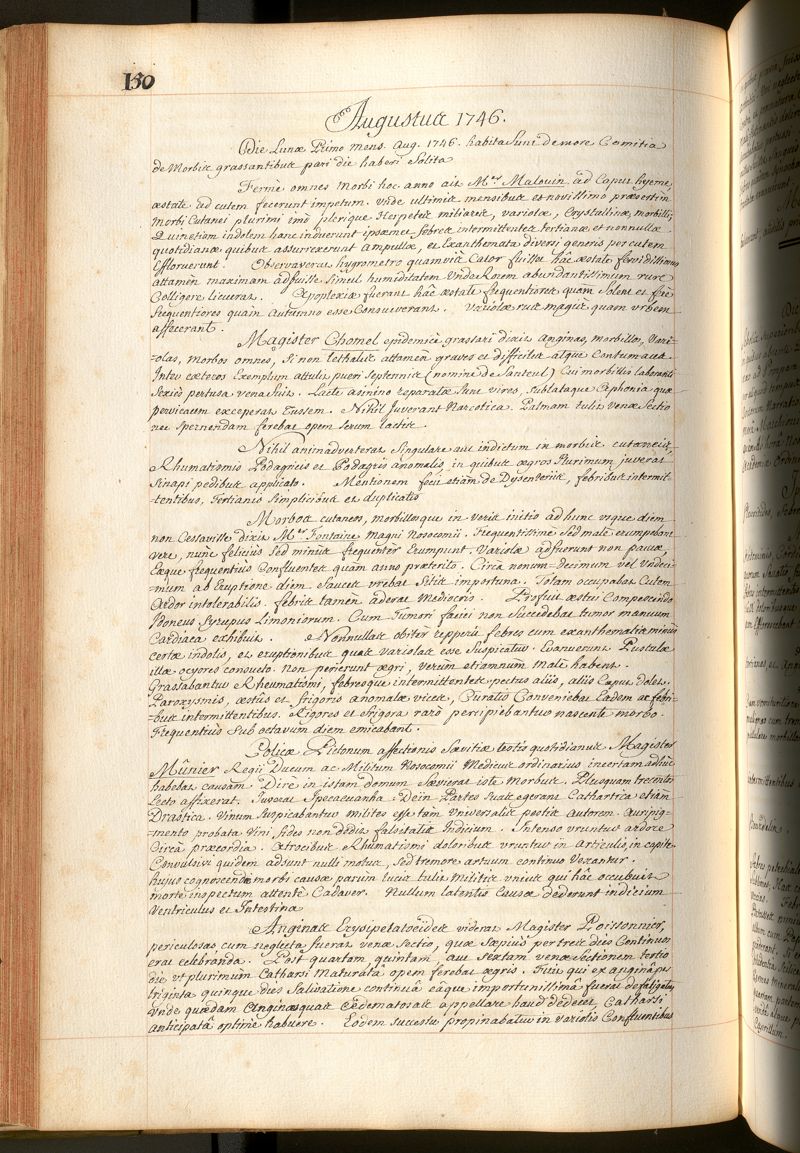 150
Augustus 1746.
Die Lunæ Primo mens. Aug. 1746. habita sunt de more Comitia
de Morbis grassantibus pari die haberi Solita
Fermè omnes Morbi hoc anno ait Mer. Malouin ad Caput hyeme,
æstate ad cutem fecerunt impetum. Unde ultimis mensibus et novissimo præsertim
Morbi Cutanei plurimi imò plerique Herpetes miliares, variolæ, Crystallinæ, morbilli;
Quinetiam indolem hanc induerunt ipsæmet febres intermittentes tertianæ et nonnullæ
quotidianæ quibus assurrexerunt ampullæ, et Exanthemata diversi generis per cutem
Effloruerunt. Observaverat hygrometro quamvis Calor fuisset hâc æstate fervidissimus
attamen maximam adfuisse Simul humiditatem Unde Rorem abundantissimum rure
Colligere licuerat. Apoplexiæ fuerant hâc æstate frequentiores quàm Solent et ferè
frequentiores quàm Autumno esse Consueverant. Variolæ rus magis quàm urbem
affecerant.
Magister Chomel epidemicè grassari dixit anginas, morbillos, Vari-
=olas, morbos omnes, Si non lethales attamen graves et difficiles atque Contumaces.
Inter cæteros Exemplum attulit pueri Septennis (nomine de Santeul) Cui morbillis laboranti
Sexies pertusa vena fuit. Lacte asinino reparatæ Sunt vires, Sublataque Aphonia quæ
pervicacem exceperat Tussem. Nihil Juverant Narcotica. Palmam tulit Venæ Sectio
nec Spernendam ferebat opem Serum lactis.
Nihil animadverterat Singulare aut indictum in morbis cutaneis,
Rhumatismis Podagricis et Podagris anomalis, in quibus ægros Plurimum juverat
Sinapi pedibus applicato. Mentionem fecit etiam de Dysenteriis, febribus intermit-
=tentibus, Tertianis Simplicibus et duplicatis
Morbos cutaneos, morbillosque in veris initio ad hunc usque diem
non Cessaville dixit Mer. Fontaine magni Nosocomii. Frequentissimè Sed malè erumpebant
vere, nunc felicius Sed minus frequentèr Erumpunt. Variolæ adfuerunt non paucæ,
Eæque frequentius Confluentes quàm anno præterito. Circa nonum=decimum vel Undeci-
=mum ab Eruptione diem fauces urebat Sitis importuna. Totam occupabat Cutem
Ardor intolerabilis. febris tamèn aderat Mediocris. Profuit æstui Compescendo
Boneus Syrupus Limoniorum. Cum Tumori faciei non Succedebat tumor manuum
Cardiaca exhibuit. Nonnullas obiter repperit febres cum exanthematis minus
certæ indolis, et eruptionibus quas variolas esse Suspicatur. Evanuerunt Pustulæ
illæ ocyores consueto. Non perierunt ægri, verùm etiamnum malè habent.
Grassabantur Rheumatismi, febresque intermittentes pectus aliis, aliis Caput dolet.
Paroxysmis, æstus et frigoris anomalæ vices, Curatio Conveniebat Eadem ac febri-
=bus intermittentibus. Rigores et frigora rarò percipiebantur nascente morbo.
Frequentius Sub octavum diem emicabant.
Colicæ Pictonum affectionis Sævitiæ testis quotidianus Magister
Mûnier Regii Ducum ac Militum Nosocomii Medicus ordinarius incertam adhuc
habebat causam. Dirè in istam domum Sævierat iste Morbus. Plusquam trecentos
Lecto affixerat. Juverat Ipecacuanha. Dein Partes Suas egerant Cathartica etiam
Drastica. Vinum Suspicabantur milites esse tam Universalis pestis autorem. Auripig-
=mento probata Vini, fides non dedit falsitatis Indicium. Intenso uruntur ardore
Circà præcordia. Atrocibus Rhumatismi doloribus uruntur in articulis, in capite.
Convulsivi quidem adsunt nulli motus, Sed tremore artuum continuo Vexantur.
hujus cognoscendæ morbi causæ parùm lucis tulit Militis unius qui hâc occubuit
morte inspectum attentè Cadaver. Nullum latentis Causæ dederunt indicium
Ventriculus et Intestina
Anginas Erysipelatoëideas viderat Magister Poissonnier,
periculosas cum neglecta fuerat venæ Sectio, quæ Sæpius per tres dies Continuos
erat celebranda. Post quartam, quintam, aut Sextam venæsectionem tertio
die ut plurimùm Catharsi Maturata opem ferebat ægris. Fuit qui ex anginâ per
triginta quinque dies Salivatione continuâ eâque importunissimâ fuerat defatigatus
Unde quasdam Anginas quas Œdematosas appellare haud dedecet, Catharsi
anticipatâ optimè habuere. Eodem successu propinabatur in Variolis Confluentibus